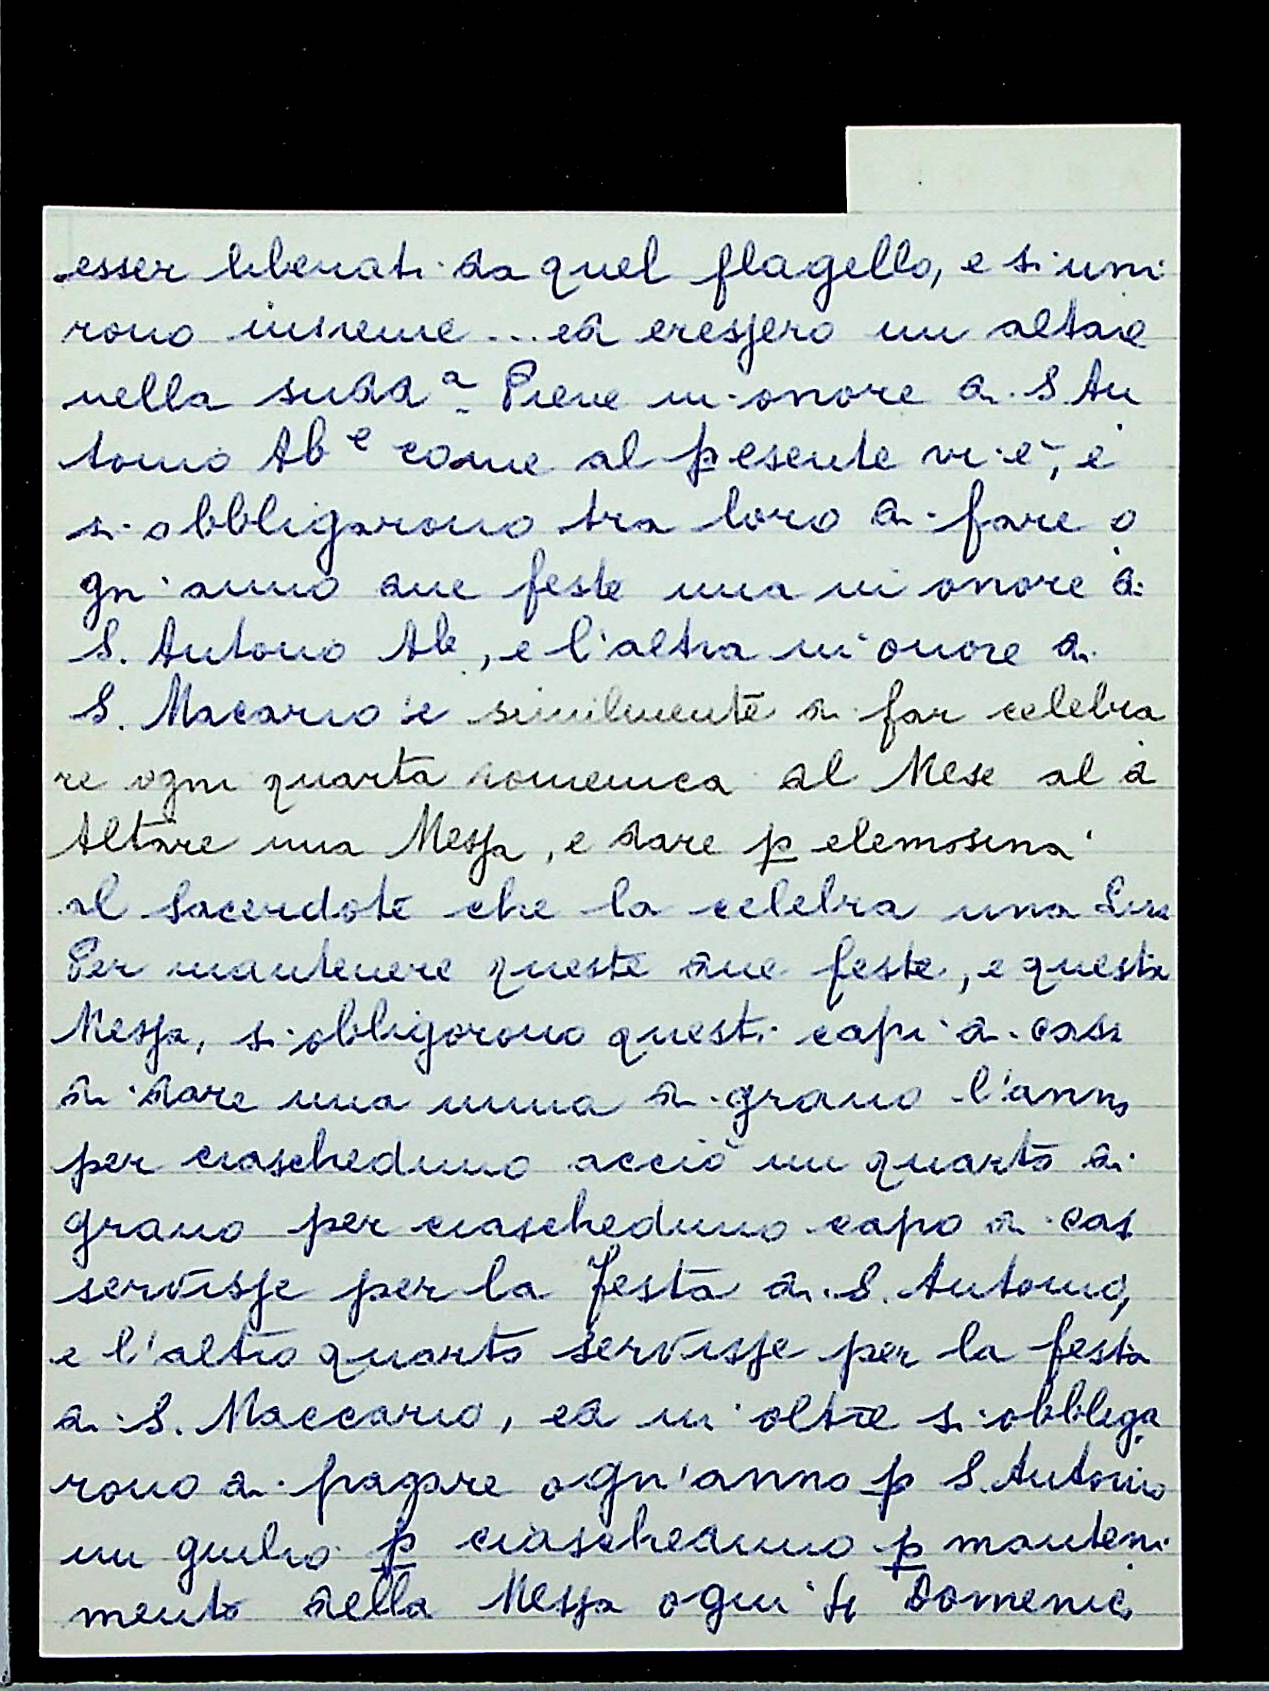 esser liberati da quel flagello, e si uni
rono insieme ... ed eressero un altare
nella sudd.a Pieve in onore di S. An
tonio Ab.e come al presente vi è, e
si obbligarono tra loro di fare o
gn'anno due feste una in onore di
S. Antonio Ab, e l'altra in onore di
S. Macario e similmente di far celebra
re ogni quarta domenica del Mese al d
Altare una Messa, e dare p elemosina
al Sacerdote che la celebra una Lira
Per mantenere queste due feste, e questa
Messa, si obbligorono questi capi di casa
di dare una mina di grano l'anno
per ciascheduno acciò un quarto di
grano per ciascheduno capo di cas
servisse per la festa di S. Antonio,
e l'altro quarto servisse per la festa
di S. Maccario, ed in oltre si obbliga
rono di pagare ogn'anno p S. Antonio
un giulio p ciascheduno p manteni
mento della Messa ogni Domenic